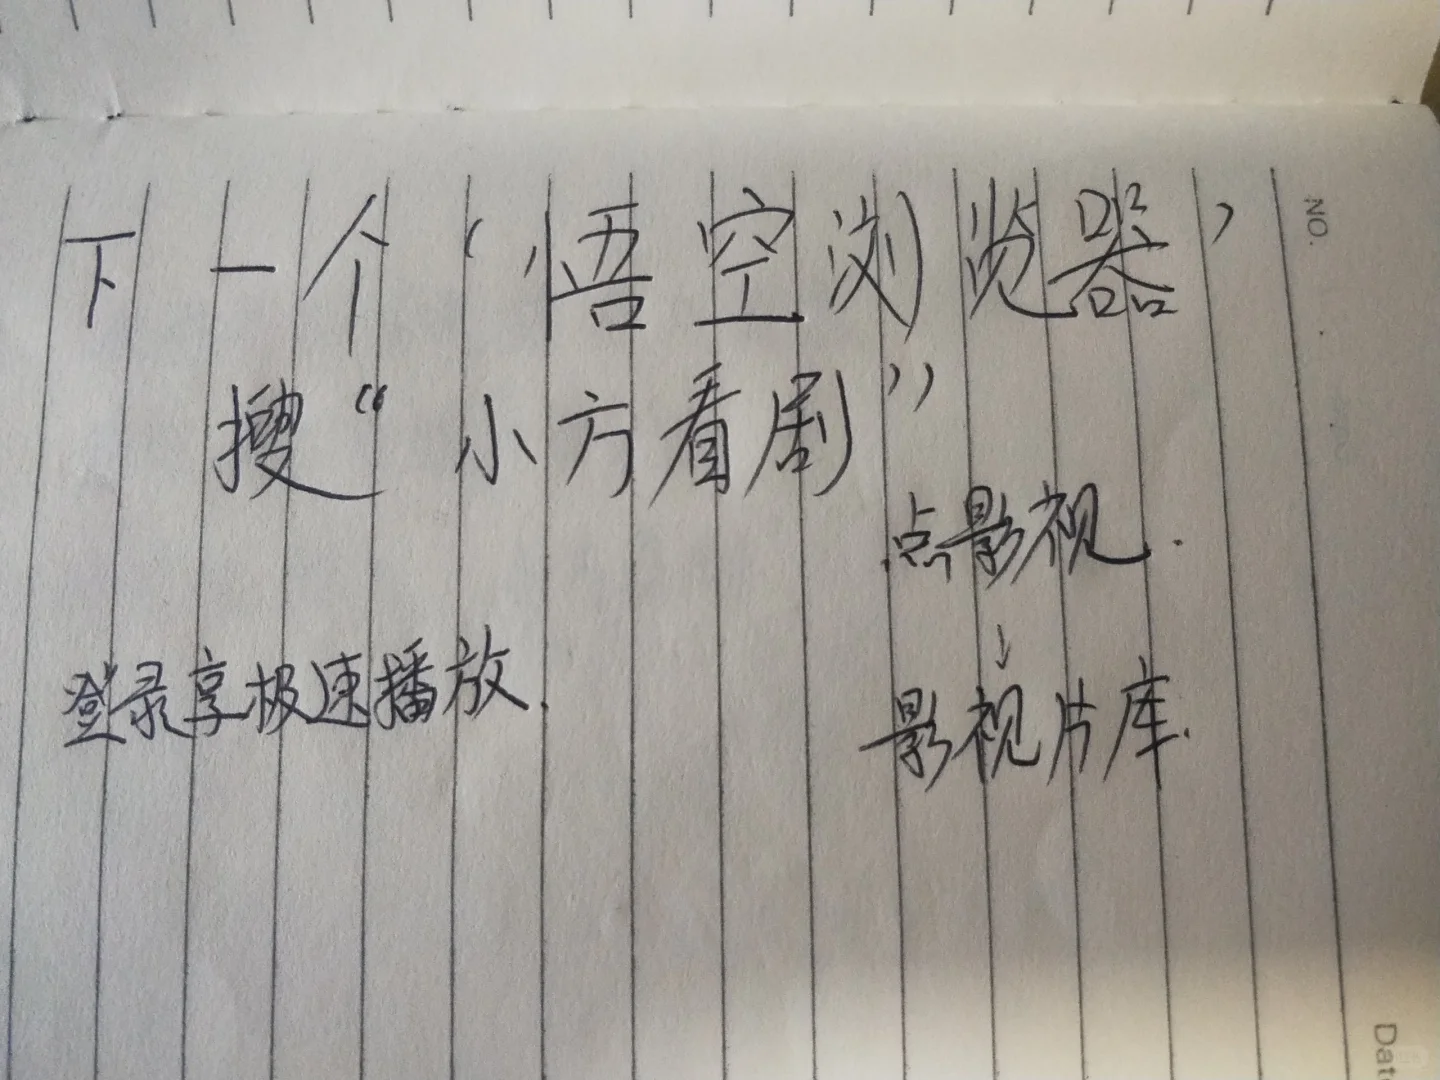 下一个‘悟空浏览器’
搜“小方看剧”
点影视.
↓
登录享极速播放.
影视片库.
NO.
Dat